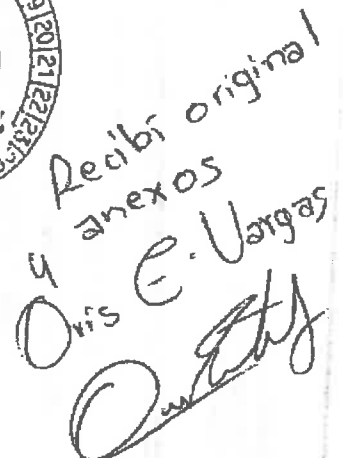 20 21 22 23
Recibí original
y anexos
Oris E. Vargas